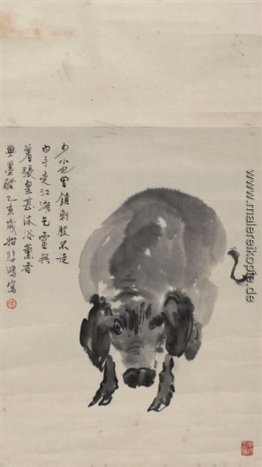 少小也曾錐刺股不徒
白手走江湖乞靈無
着張皇甚沐浴薰香
畫墨豬乙亥歲始悲鴻寫
www.malereikopie.de